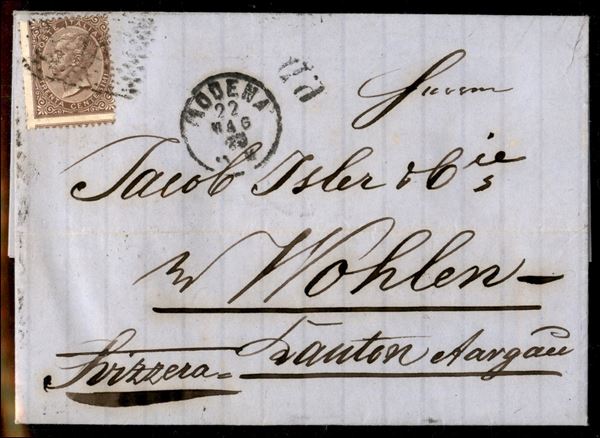 POSTE ITALIANE
TRENTA CENTESIMI
MODENA
22
MAG
P.D.
Herren
Jacob Isler & Cie
in Wohlen
Kanton Aargau
Svizzera